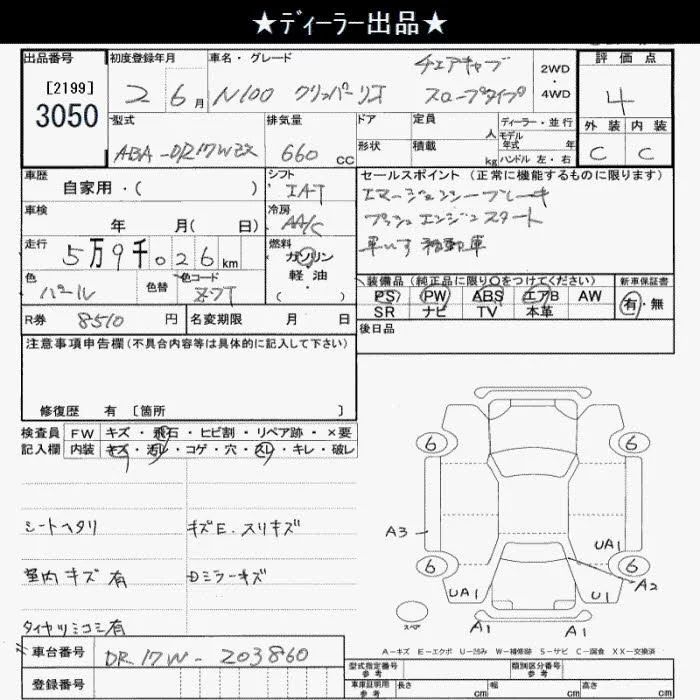 ★ディーラー出品★
出品番号 初度登録年月 車名・グレード 評価点
[2199]
3050
2 6月 N100 クリッパーリオ チェアキャブ スロープタイプ 2WD 4WD
4
型式 排気量 ドア 定員 人 ディーラー・並行 外装 内装
ABA-DR17W 660 CC 形状 積載 kg モデル年式 年式 ハンドル 左・右 C C
車歴 自家用・( ) シフト IAT
セールスポイント(正常に機能するものに限ります)
エマージェンシーブレーキ
プッシュエンジンスタート
車いす移動車
車検 年 月( 日) 冷房 AA/C
走行 5万9千026km 燃料 ガソリン 軽油 ( ・ )
色 パール 色替 色コード
装備品(純正品に限り○をつけてください) 新車保証書
PS PW ABS エアB AW 有・無
SR ナビ TV 本革
R券 8510円 名変期限 月 日 後日品
注意事項申告欄(不具合内容等は具体的に記入して下さい)
修復歴 有 [箇所 ]
検査員記入欄 FW キズ・飛石・ヒビ割・リペア跡・×要
内装 キズ・汚レ・コゲ・穴・スレ・キレ・破レ
シートヘタリ キズE.スリキズ
室内キズ有 Dミラーキズ
タイヤツミコミ有
6 6
A3
UA1
6 6
UA1 U1 A2
スペア
A1 A1
A-キズ E-エクボ U-凹み W-補修跡 S-サビ C-腐食 XX-交換済
車台番号 DR17W-203860
登録番号
型式指定番号 参考 類別区分番号 参考
車庫証明用 参考 長さ cm 幅 cm 高さ cm